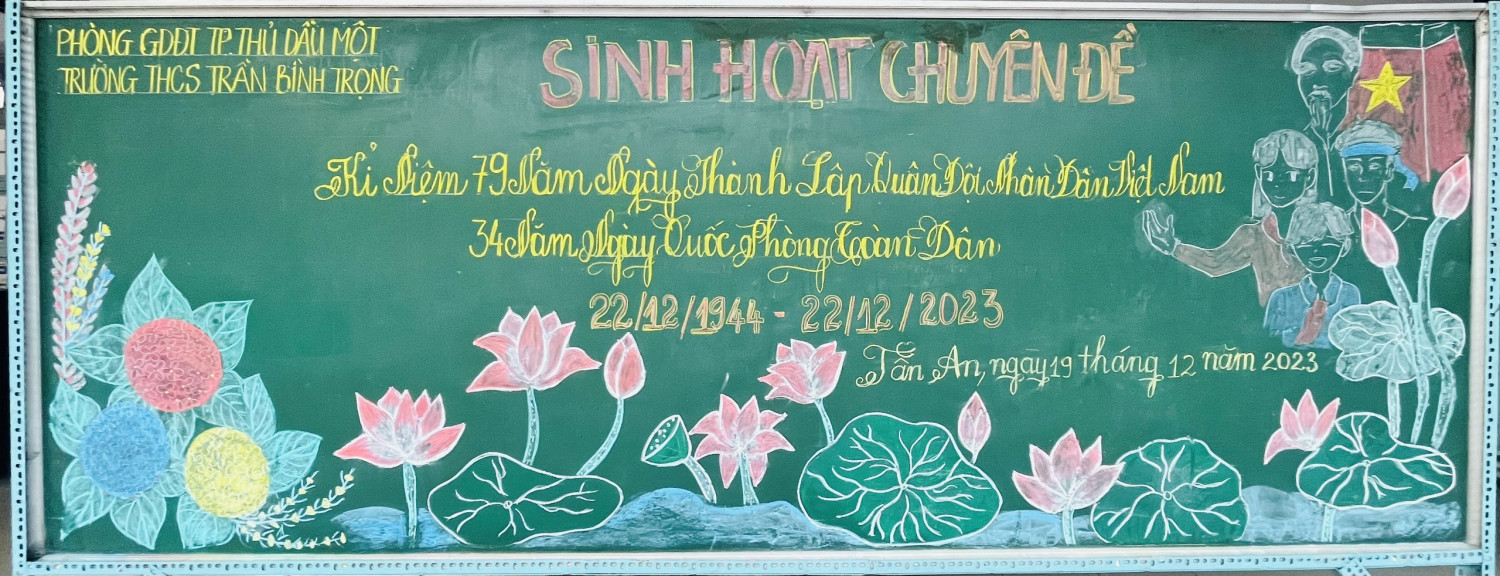 PHÒNG GDĐT TP. THỦ DẦU MỘT
TRƯỜNG THCS TRẦN BÌNH TRỌNG
SINH HOẠT CHUYÊN ĐỀ
Kỉ Niệm 79 Năm Ngày Thành Lập Quân Đội Nhân Dân Việt Nam
34 Năm Ngày Quốc Phòng Toàn Dân
22/12/1944 - 22/12/2023
Tân An, ngay 19 tháng 12 năm 2023